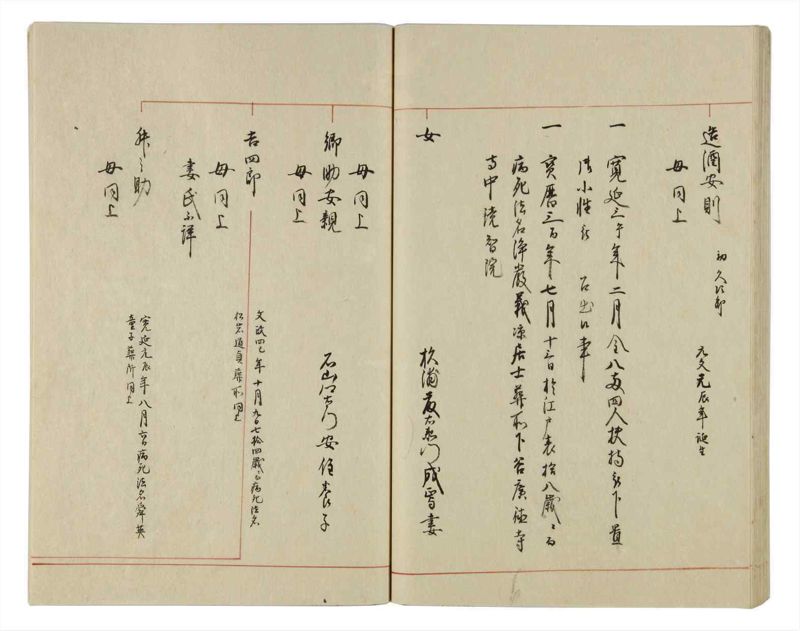 造酒安則
初久次郎
元文元辰年誕生
母同上
一 寛延三午年二月金八両四人扶持被下置
御小性被 召出候事
一 宝暦三酉年七月十三日於江戸表拾八歳ニ而
病死法名浄厳義凉居士葬所下谷広徳寺
寺中徳雲院
女
杉浦
成雪妻
母同上
郷助安親
石山 安住養子
母同上
吉四郎
文政四巳年十月九日七拾四歳ニ而病死法名
葬所同上
母同上
妻氏不詳
母同上
寛延元辰年八月 病死法名舜英
童子葬所同上